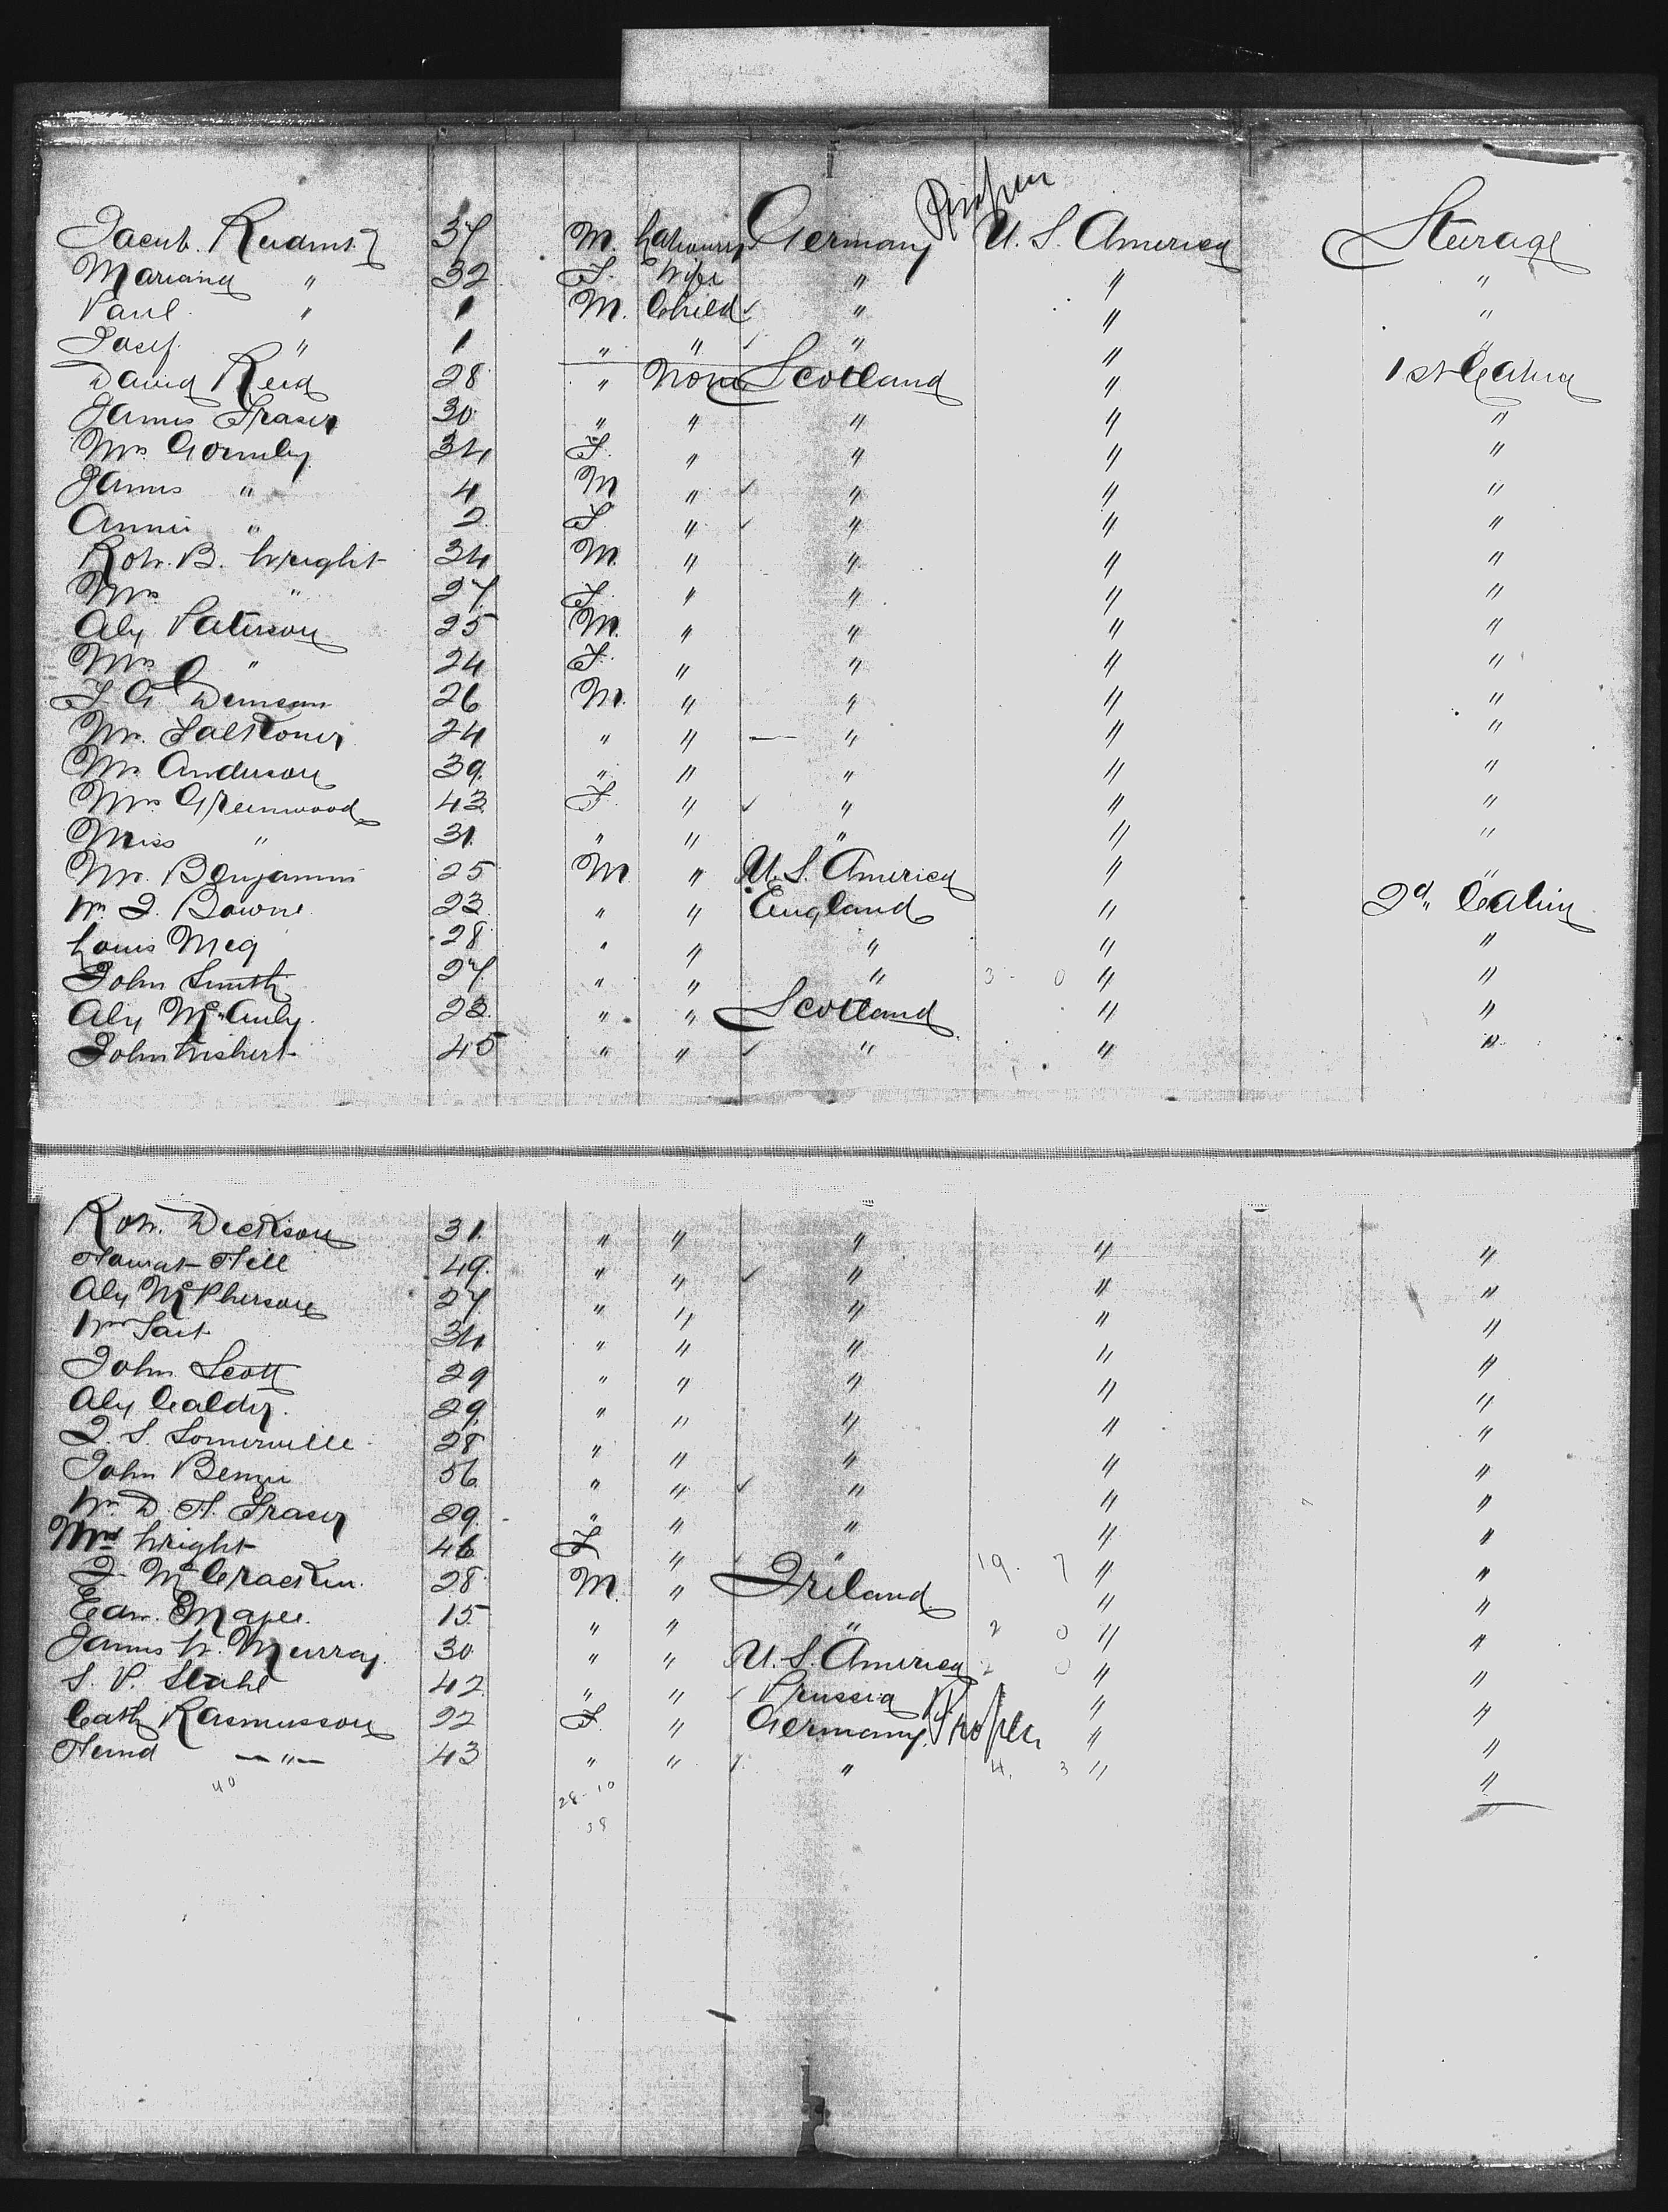 Proper
Jacob 37 M. Labourer Germany U. S. America Steerage
Mariana " 32 F. Wife " " "
Paul " 1 M. Child " " "
Josef " 1 " " " " "
David Reid 28 " None Scotland " 1st Cabin
James Fraser 30 " " " " "
Mrs Gormley 34 F. " " " "
James " 4 M " " " "
Annie " 2 F " " " "
Robt. B. Wright 34 M " " " "
Mrs " 27 F. " " " "
Alex Paterson 25 M. " " " "
Mrs " 24 F. " " " "
26 M. " " " "
Mr. Falkoner 24 " " " " "
Mr Anderson 39 " " " " "
Mrs Greenwood 43 F. " " " "
Miss " 31 " " " " "
Mr. Benjamin 25 M " U. S. America " "
Wm J. Bowne 23 " " England " 2d Cabin
Louis 28 " " " " "
John Smith 27 " " " 3 - 0 " "
Alex McAuly 23 " " Scotland " "
John Wishert 45 " " " " "
Robt. Dickson 31 " " " " "
Hill 49 " " " " "
Alex McPherson 27 " " " " "
Wm Tait 34 " " " " "
John Scott 29 " " " " "
Alex Calder 29 " " " " "
J. S. Somerville 28 " " " " "
John 56 " " " " "
Wm D. H. Fraser 29 " " " " "
Mrs Wright 46 F " " 19. 7 " "
J. McCracken 28 M. " Ireland " "
Edw. Magee 15 " " " 2 0 " "
James W. Murray 30 " " U. S. America 2 0 " "
S. P. Stahl 42 " " Prussia " "
Cath Rasmusson 22 F. " Germany Proper " "
—"— 43 " " " 4. 3 " "
40 28-10 "
38